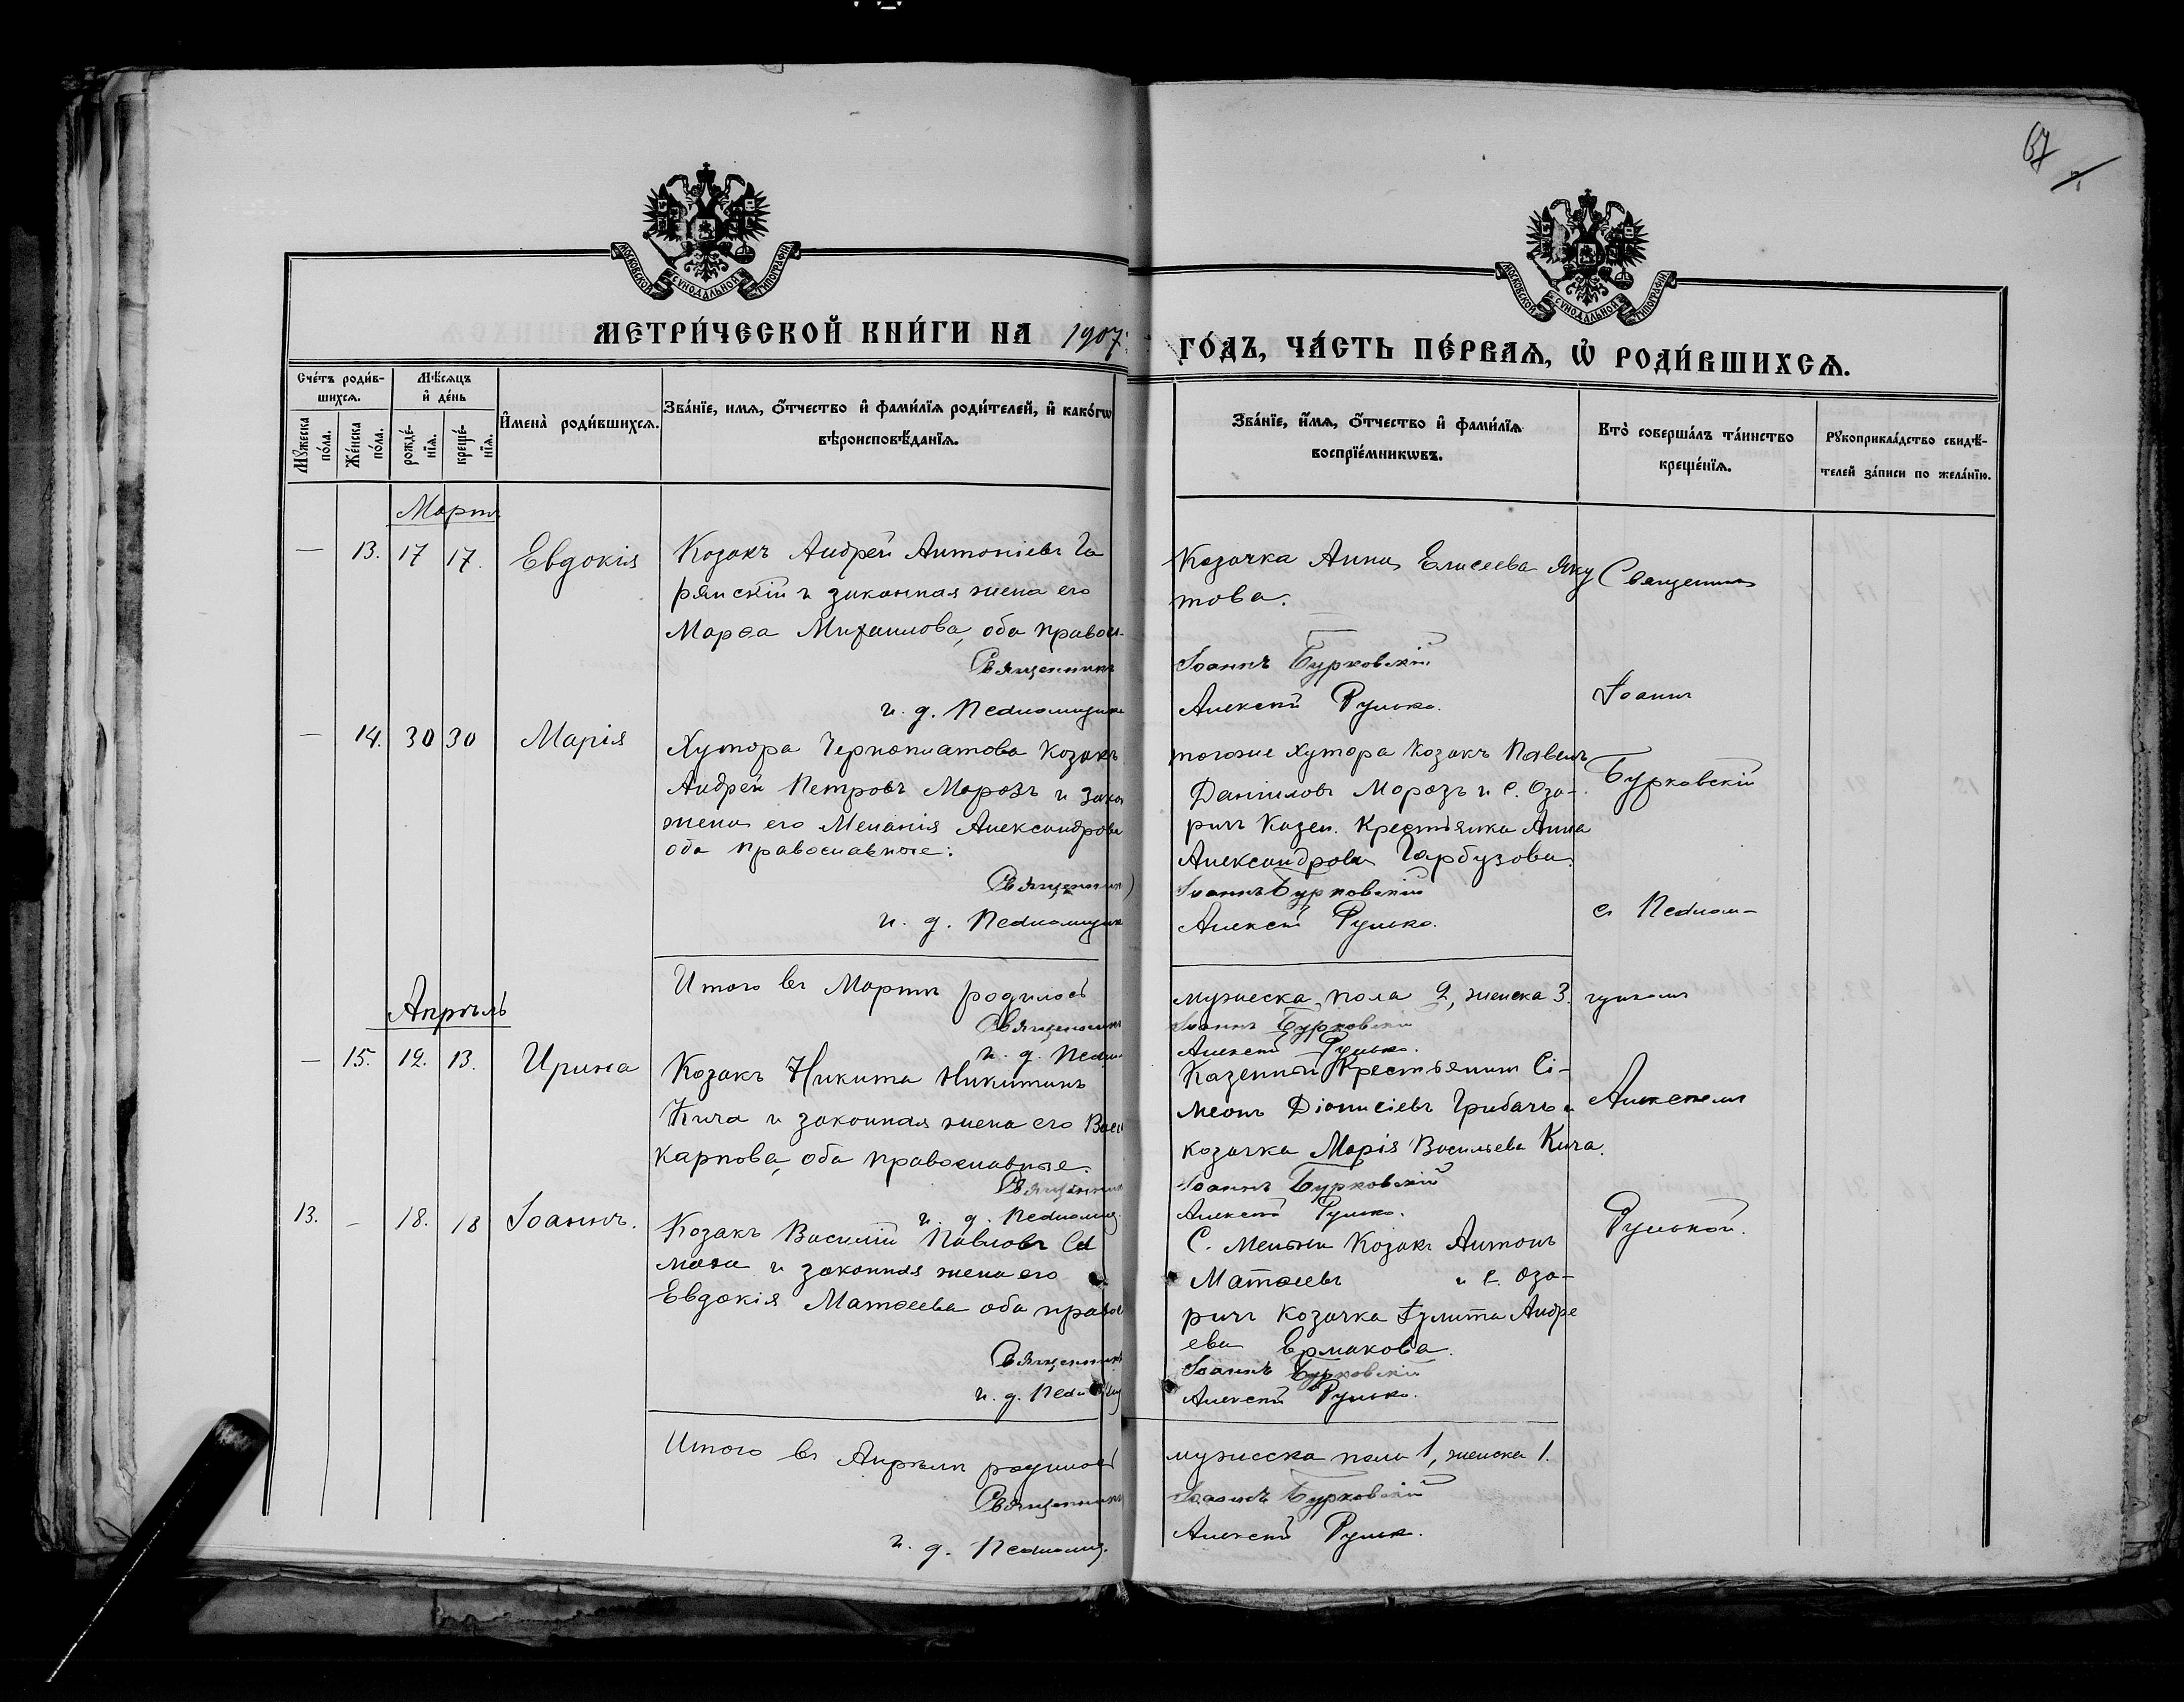 67
МОСКОВСКОЙ СѴНОДАЛЬНОЙ ТИПОГРАФІИ
МОСКОВСКОЙ СѴНОДАЛЬНОЙ ТИПОГРАФІИ
МЕТРИ́ЧЕСКОЙ КНИ́ГИ НА 1907
ГО́ДЪ, ЧА́СТЬ ПЕ́РВАѦ, Ѡ҆ РОДИ́ВШИХСѦ.
Сче́тъ роди́в-
шихсѧ.
Мꙋ́жеска по́ла.
Же́нска по́ла.
Мѣ́сѧцъ
и҆ де́нь
рожде́-
нїѧ.
креще́-
нїѧ.
И҆мена̀ роди́вшихсѧ.
Зва́нїе, имѧ, ѻ҆́тчество и҆ фами́лїѧ роди́телей, и҆ како́гѡ
вѣроисповѣ́данїѧ.
Зва́нїе, и҆́мѧ, ѻ҆́тчество и҆ фами́лїѧ
воспрїе́мникѡвъ.
Кто̀ соверша́лъ та́инство
креще́нїѧ.
Рꙋкоприкла́дство свидѣ́-
телей за́писи по жела́нїю.
Мартъ
— 13. 17 17. Евдокія
Козакъ Андрей Антоніевъ Га
рянскій и законная жена его
Марѳа Михаилова, оба правосл.
Священникъ
и. д. Псаломщика
Козачка Анна Елисеева Яку
това.
Іоаннъ Бурковскій
Алексѣй Рулько.
Священникъ
Іоаннъ
— 14. 30 30 Марія
Хутора Черноплатова Козакъ
Андрей Петровъ Морозъ и закон
жена его Меланія Александрова
оба православные.
Священникъ
и. д. Псаломщик
тогоже хутора Козакъ Павелъ
Даниловъ Морозъ и с. Оза-
ричъ Казен. Крестьянка Анна
Александрова Гарбузова.
Іоаннъ Бурковскій
Алексѣй Рулько.
Бурковскій
съ Псалом-
Итого въ Мартѣ родилось
Священникъ
и. д. Псал
мужеска пола 2, женска 3.
Іоаннъ Бурковскій
Алексѣй Рулько.
щикомъ
Апрѣль
— 15. 12. 13. Ирина
Козакъ Никита Никитинъ
Кича и законная жена его Васи
Карпова, оба православные.
Священник
и. д. Псаломщ.
Казенный Крестьянинъ Сі-
меонъ Діонисіевъ Грибачъ и
козачка Марія Васильева Кича.
Іоаннъ Бурковскій
Алексѣй Рулько.
Алексѣемъ
Рулькой.
13. — 18. 18 Іоаннъ.
Козакъ Василій Павловъ
и законная жена его
Евдокія Матѳеева оба правос
Священникъ
и. д. Псаломщ
С. Мельни Козакъ Антонъ
Матѳеевъ и с. Оза-
ричъ козачка Іулита Андре
ева Ермакова.
Іоаннъ Бурковскій
Алексѣй Рулько.
Итого въ Апрѣлѣ родилось
Священникъ
и. д. Псаломщ.
мужеска пола 1, женска 1.
Іоаннъ Бурковскій
Алексѣй Рульк.